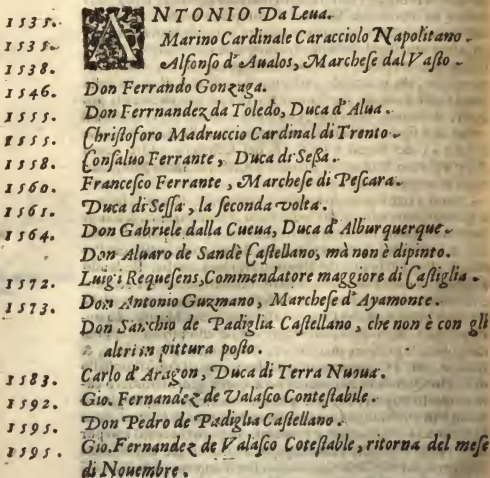 1535. ANTONIO Da Leua.
1535. Marino Cardinale Caracciolo Napolitano.
1538. Alfonſo d'Aualos, Marcheſe dal Vaſto.
1546. Don Ferrando Gonzaga.
1555. Don Ferrnandez da Toledo, Duca d'Alua.
1555. Chriſtoforo Madruccio Cardinal di Trento.
1558. Conſaluo Ferrante, Duca di Seſſa.
1560. Franceſco Ferrante, Marcheſe di Peſcara.
1561. Duca di Seſſa, la ſeconda volta.
1564. Don Gabriele dalla Cueua, Duca d'Alburquerque.
Don Aluaro de Sandè Caſtellano, mà non è dipinto.
1572. Luigi Requeſens, Commendatore maggiore di Caſtiglia.
1573. Don Antonio Guzmano, Marcheſe d'Ayamonte.
Don Sanchio de Padiglia Caſtellano, che non è con gli
altri in pittura poſto.
1583. Carlo d'Aragon, Duca di Terra Nuoua.
1592. Gio. Fernandez de Valaſco Conteſtabile.
1595. Don Pedro de Padiglia Caſtellano.
1595. Gio. Fernandez de Valaſco Coteſtable, ritorna del meſe
di Nouembre.